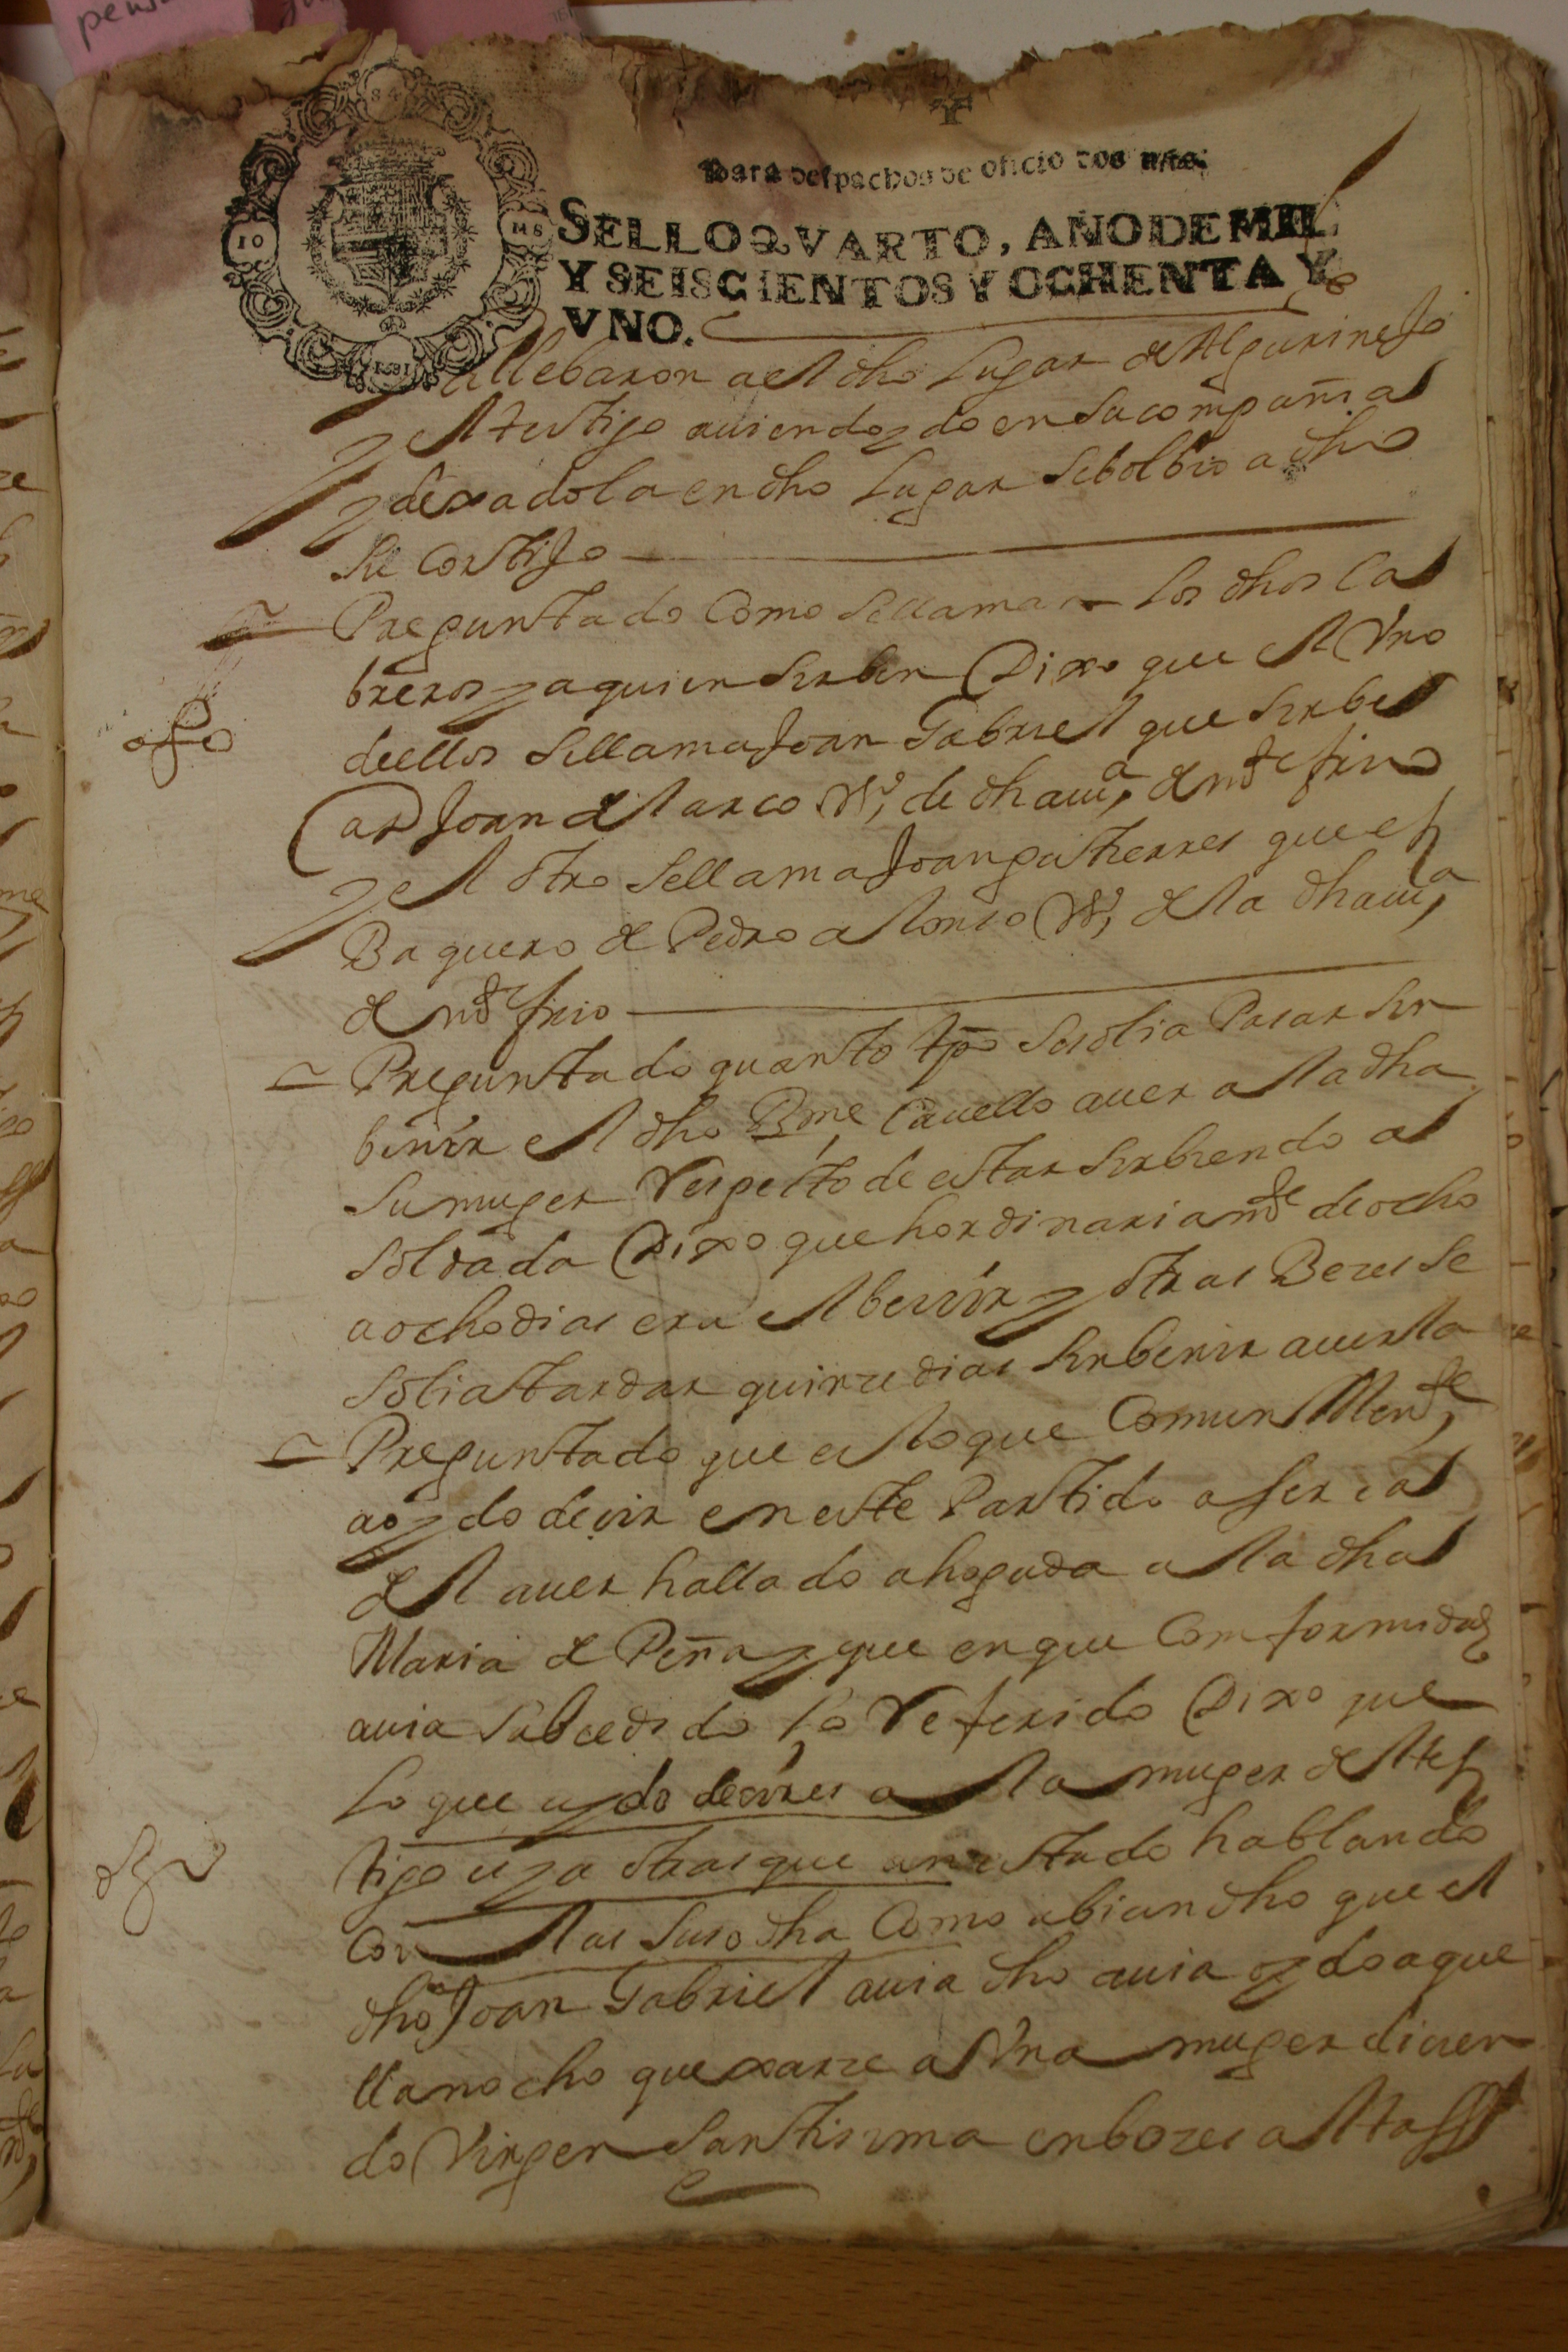 Para despachos de oficio dos mrs.
SELLO QVARTO, AÑO DE MIL
Y SEISCIENTOS Y OCHENTA Y
VNO.
llebaron a el dho Lugar de Algarinejo
y el testigo auiendo ydo en su compañia
y dexadola en dho Lugar se bolbio a dho
su cortijo
Preguntado como se llaman los dhos ca
breros y a quien serben Dixo que el Vno
de ellos se llama Joan Gabriel que serbe
a Joan del Arco Vº de dha uiª de mte frio
y el otro se llama Joan gutierres que es
Baquero de Pedro alonso Vº de la dha uiª
de mte frio
Preguntado quanto tpo se solia Pasar sin
benir el dho Bme Cauello a uer a la dha
su muger Respecto de estar serbiendo a
soldada Dixo que hordinariamte de ocho
a ocho dias era el benir y otras Beces se
solia tardar quince dias sin benir a uerla
Preguntado que es lo que comun Mente
a oydo decir en este Partido aserca
del auer hallado ahogada a la dha
Maria de Peña y que en que comformidad
auia subcedido lo Referido Dixo que
lo que a ydo decir es a la muger del tes
tigo y a otras que an estado hablando
con las suso dha como abian dho que el
dho Joan Gabriel auia dho auia oydo aque
lla noche quexarse a Vna muger dicien
do Virgen Santisima en boces altas